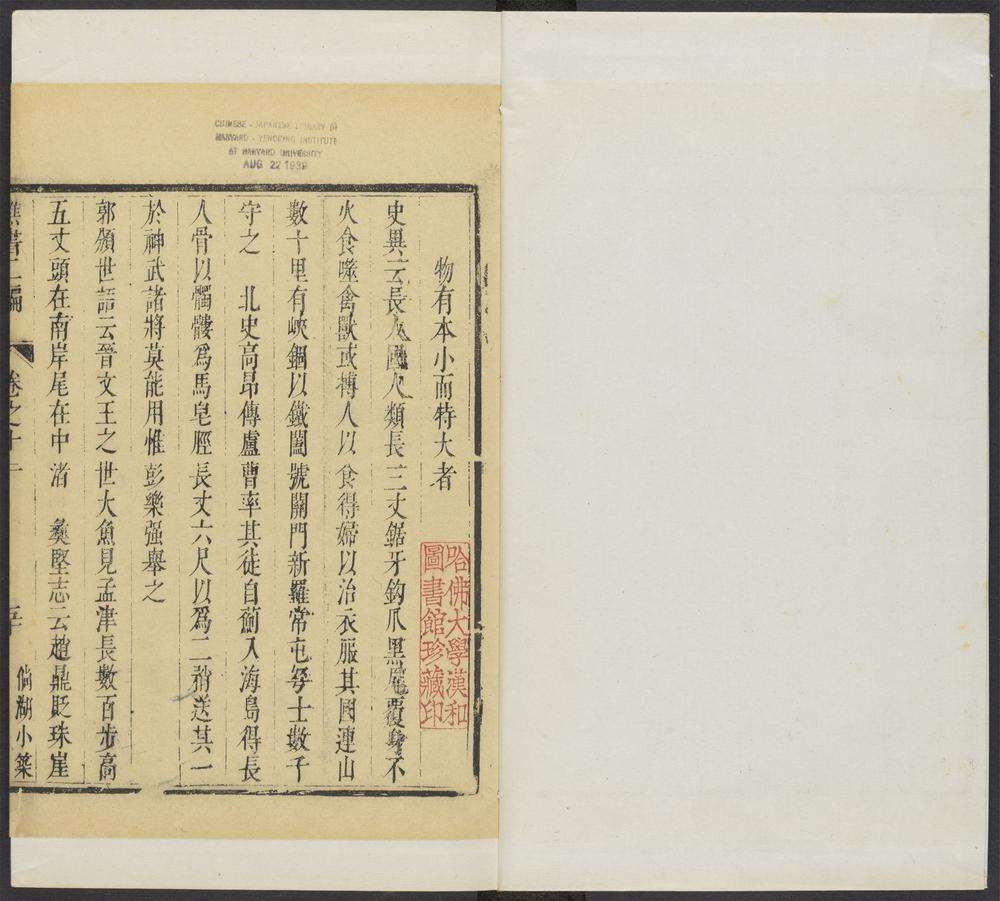 CHINESE - JAPANESE LIBRARY OF
HARVARD - YENCHING INSTITUTE
AT HARVARD UNIVERSITY
AUG 22 1939
物有本小而特大者
史異云長人國人類長三丈鋸牙鈎爪黑毛覆身不
火食噬禽獸或搏人以食得婦以治衣服其國連山
數十里有峽錮以鐵闔號關門新羅常屯弩士數千
守之　北史高昂傳盧曹率其徒自薊入海島得長
人骨以髑髏爲馬皂脛長丈六尺以爲二矟送其一
於神武諸將莫能用惟彭樂强舉之
郭頒世語云晉文王之世大魚見孟津長數百步高
五丈頭在南岸尾在中渚　夷堅志云趙鼎貶珠崖
樵書二編
卷之十一
倘湖小築
哈佛大學漢和
圖書館珍藏印